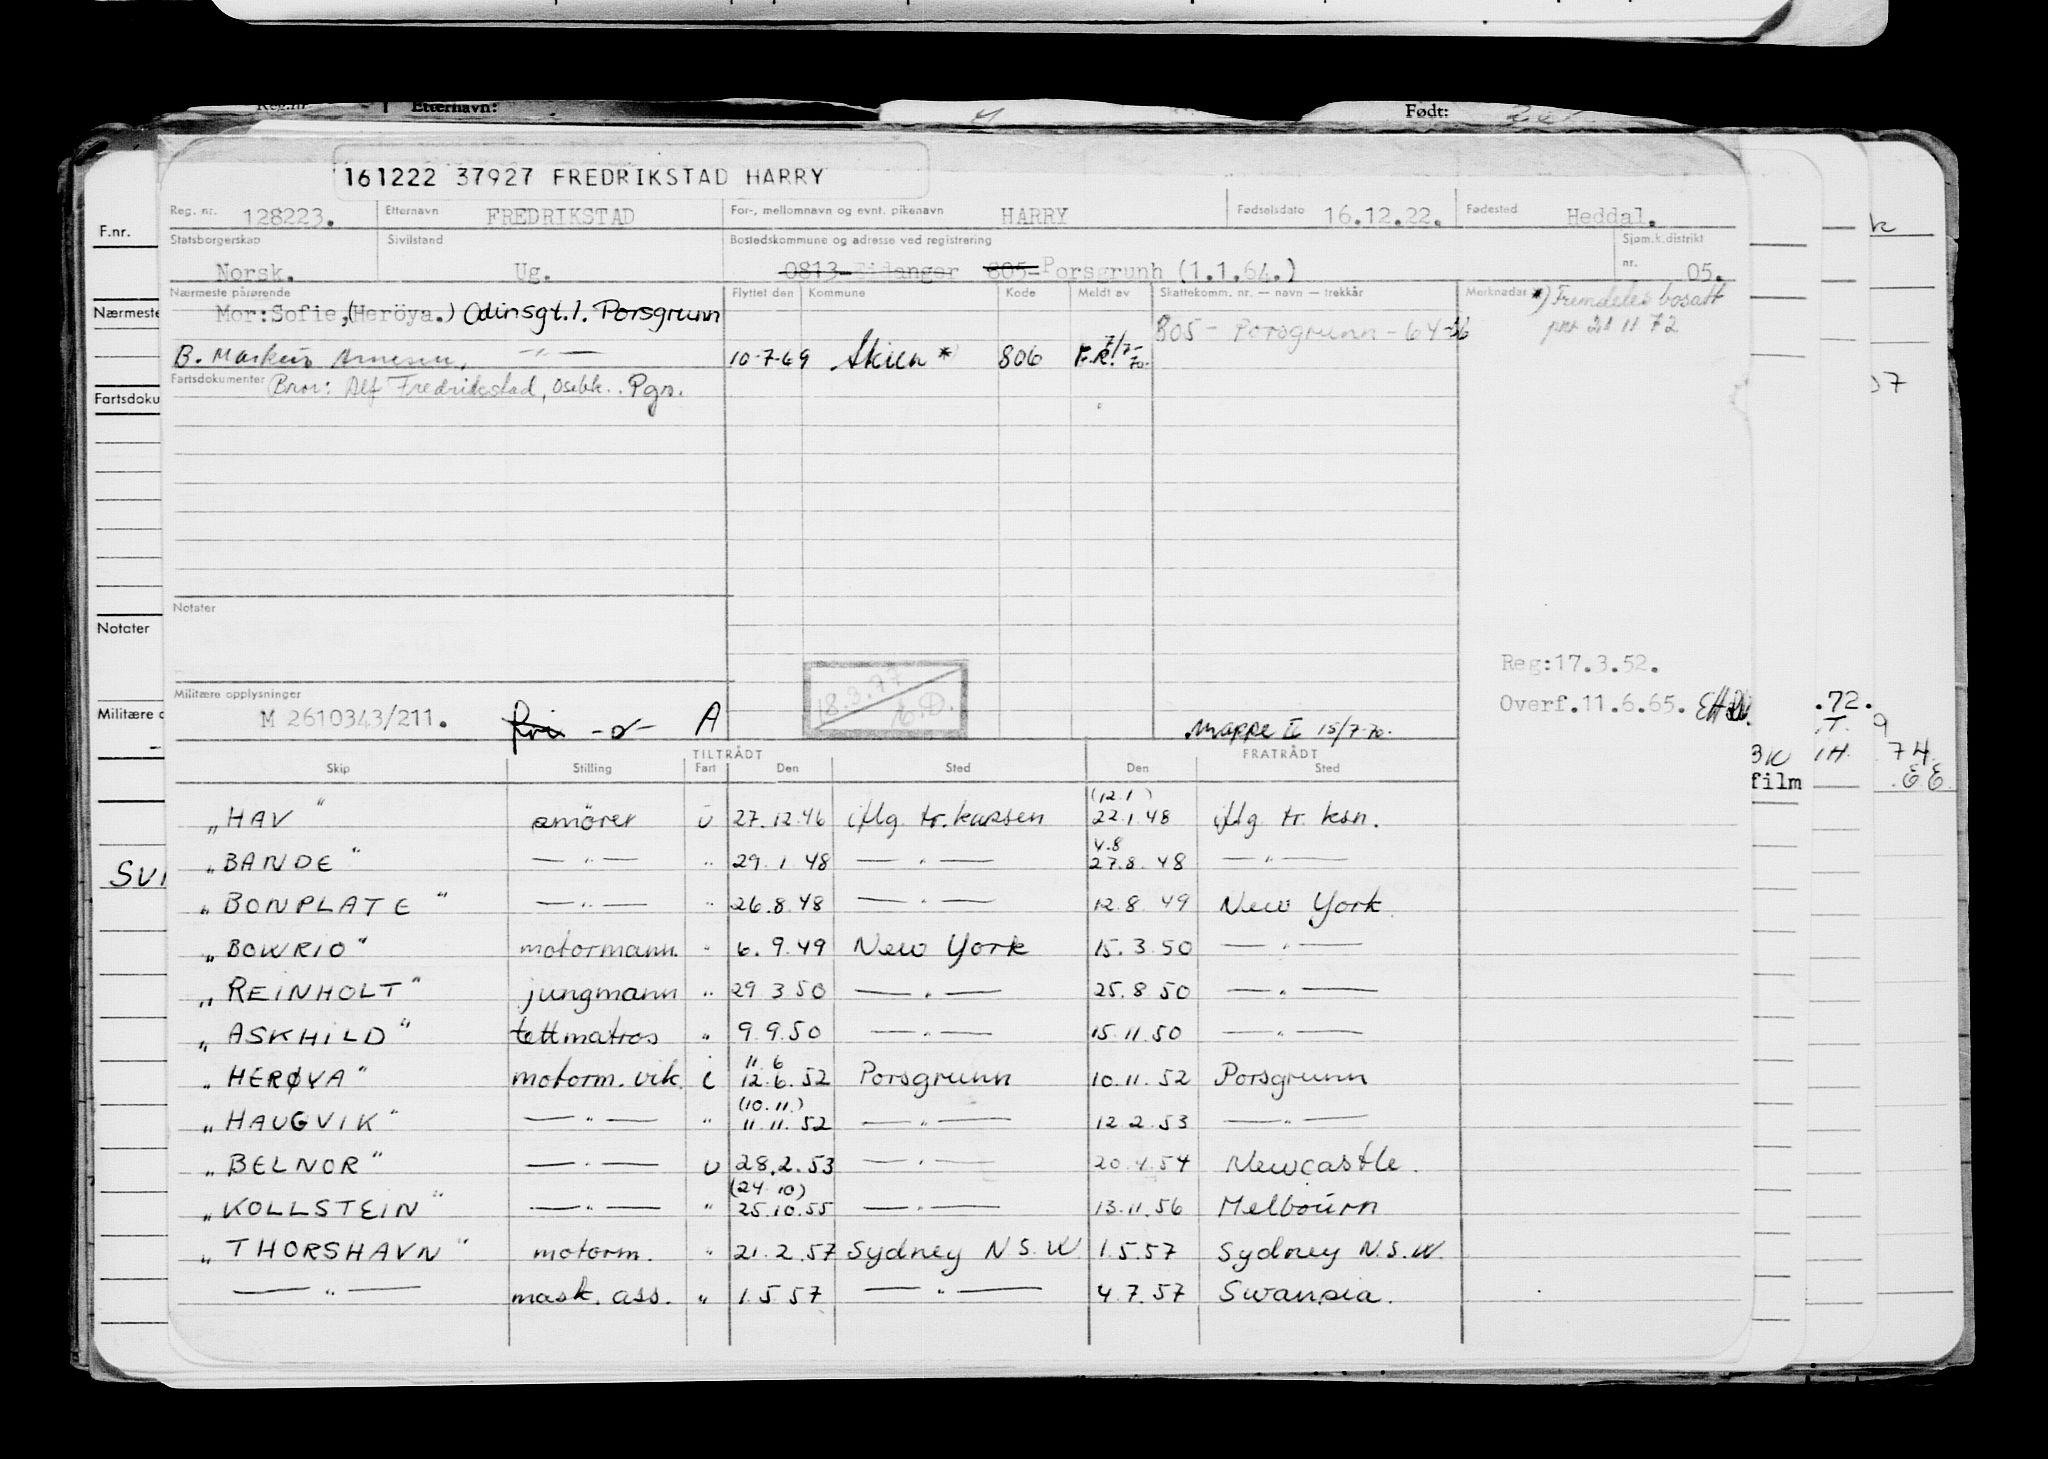 Reg.nr Etternavn: Født:
161222 37927 FREDRIKSTAD HARRY
Reg. nr. 128223. Etternavn FREDRIKSTAD For-, mellomnavn og evnt. pikenavn HARRY Fødselsdato 16.12.22. Fødested Heddal.
F.nr.
Statsborgerskap Sivilstand Bostedskommune og adresse ved registrering Sjøm.k.distrikt
Norsk. Ug. 0813-Eidanger 805-Porsgrunn (1.1.64.) nr. 05.
Nærmeste pårørende Flyttet den Kommune Kode Meldt av Skattekomm. nr. — navn — trekkår Merknader *) Fremdeles bosatt
Nærmeste Mor:Sofie,(Heröya.) Odinsgt.1. Porsgrunn 805 - Porsgrunn - 64-66 pr 21 11 72
B. Markus Arnesen, —"— 10-7-69 Skien * 806 F.R. 7/7-70.
Fartsdokumenter Bror: Alf Fredrikstad, Osebk.. Pgn.
Fartsdoku
07
Notater
Notater
Reg:17.3.52.
Militære opplysninger 18.3.77 Overf.11.6.65.
Militære o M 2610343/211. A Mappe II 15/7-70. .72.
TILTRÅDT FRATRÅDT
Skip Stilling Fart Den Sted Den Sted
74.
film
(12.1)
„HAV" smörer u 27.12.46 iflg. tr.kassen 22.1.48 iflg tr. ksn.
4.8
„BANDE" —"— " 29.1.48 —"— 27.8.48 —"—
SVI
„BONPLATE" —"— " 26.8.48 —"— 12.8.49 New York.
„BOWRIO" motormann. " 6.9.49 New York 15.3.50 —"—
„REINHOLT" jungmann " 29 3 50 —"— 25.8.50 —"—
„ASKHILD" lettmatros " 9.9.50 —"— 15.11.50 —"—
11.6
„HERØYA" motorm. vik. i 12.6.52 Porsgrunn 10.11.52 Porsgrunn
(10.11.)
„HAUGVIK" —"— " 11.11.52 —"— 12.2.53 —"—
„BELNOR" —"— u 28.2.53 —"— 20.4.54 Newcastle.
(24.10)
„KOLLSTEIN" —"— " 25.10.55 —"— 13.11.56 Melbourn
„THORSHAVN" motorm. " 21.2.57 Sydney N.S.W. 1.5.57 Sydney N.S.W.
—"— mask. ass. " 1.5 57 —"— 4.7.57 Swansia.